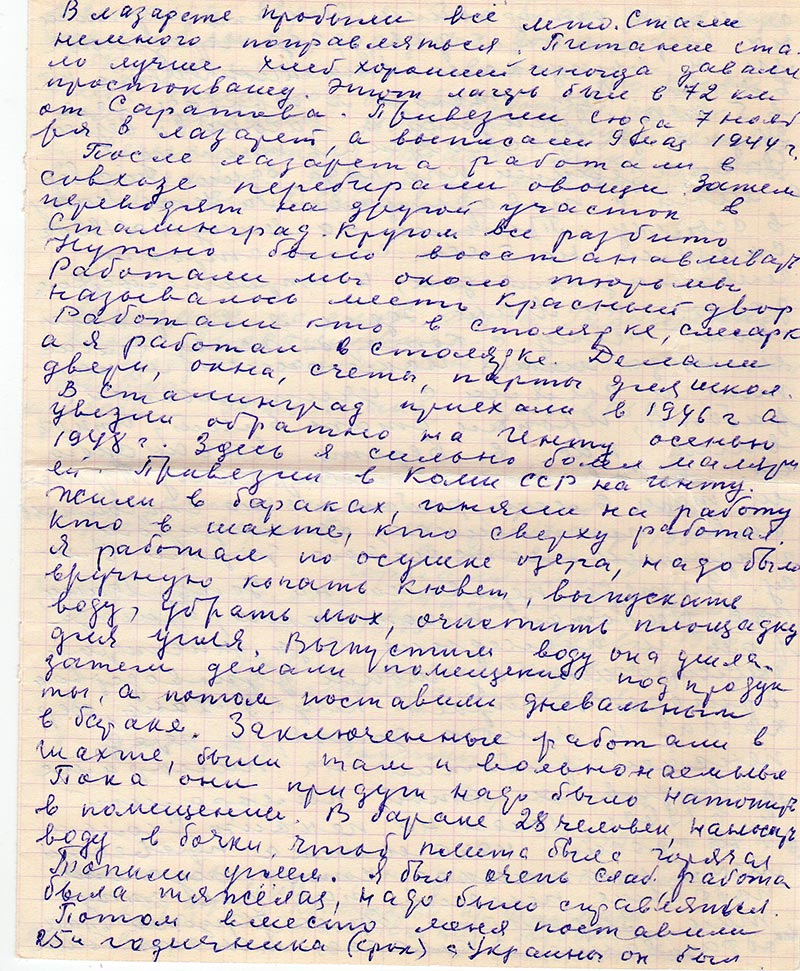 В лазарете пробыли всё лето. Стали
немного поправляться. Питание ста
ло лучше хлеб хороший иногда давали
простоквашу. Этот лагерь был в 72 км
от Саратова. Привезли сюда 7 нояб
ря в лазарет, а выписали 9 мая 1944 г.
После лазарета работали в
совхозе перебирали овощи. Затем
переводят на другой участок в
Сталинград. Кругом всё разбито
Нужно было восстанавливать
Работали мы около тюрьмы
называлось месть Красный двор
Работали кто в столярке, слесарк
а я работал в столярке. Делали
двери, окна, счеты, парты для школ.
В Сталинград приехали в 1946 г а
увезли обратно на Инту осенью
1948 г. Здесь я сильно болел маляри
ей. Привезли в Коми ССР на Инту.
Жили в бараках, гоняли на работу
кто в шахте, кто сверху работал.
Я работал по осушке озера, надо было
вручную копать кювет, выпускать
воду, убрать мох, очистить площадку
для угля. Выпустили воду она ушла.
затем делали помещение под продук
ты, а потом поставили дневальным
в бараке. Заключенные работали в
шахте, были там и вольнонаемные
Пока они придут надо было натопить
в помещении. В бараке 28 человек, наносить
воду в бочки, чтоб плита была горячая
Топили углем. Я был очень слаб работа
была тяжёлая, надо было справляться.
Потом вместо меня поставили
25и годичника (срок) с Украины он был